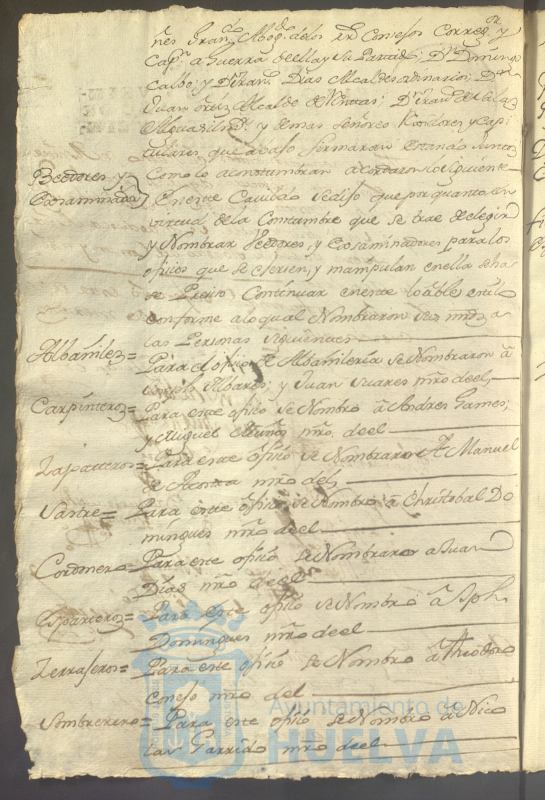 Cap.n a Guerra de ella y su Partido; D.n Domingo
Calbo, y D.n Fran.co Dias Alcaldes ordinarios; D.n
Juan Alcalde de D.n Fran.co de
y demas Señores y Capi
tulares que abajo firmaran estando juntos
como lo acostumbran acordaron lo siguiente
Beedores y
Exsaminadores
En este Cavildo se dijo que por quanto en
virtud de la Costumbre que se trae de elegir
y Nombrar Veedores, y Exsaminadores para los
ofizios que se ejersen, y manipulan en ella se ha
se Preciso Continuar en este loable estilo
conforme a lo qual Nombraron sus mrds a
las Personas siguientes
Albañiles= Para el ofizio de Albañileria se Nombraron â
Albares; y Juan Suares mro de el,
Carpintero= Para este ofizio se Nombro â Andres Gomes;
y Miguel Muños mro de el
Zapatero= Para este ofizio se Nombraron â Manuel
de Acosta mro del,
Sastre= Para este ofizio se Nombro â Christobal Do
mingues mro de el
Cordonero= Para este ofizio se Nombraron a Juan
Dias mro de el
Espartero= Para este ofizio se Nombro â Jph
Domingues mro de el
Para este ofizio se Nombro â Theodoro
Conejo mro del
Sombrerero= Para este ofizio se Nombro â Nico
las Garrido mro de el
Ayuntamiento de
HUELVA